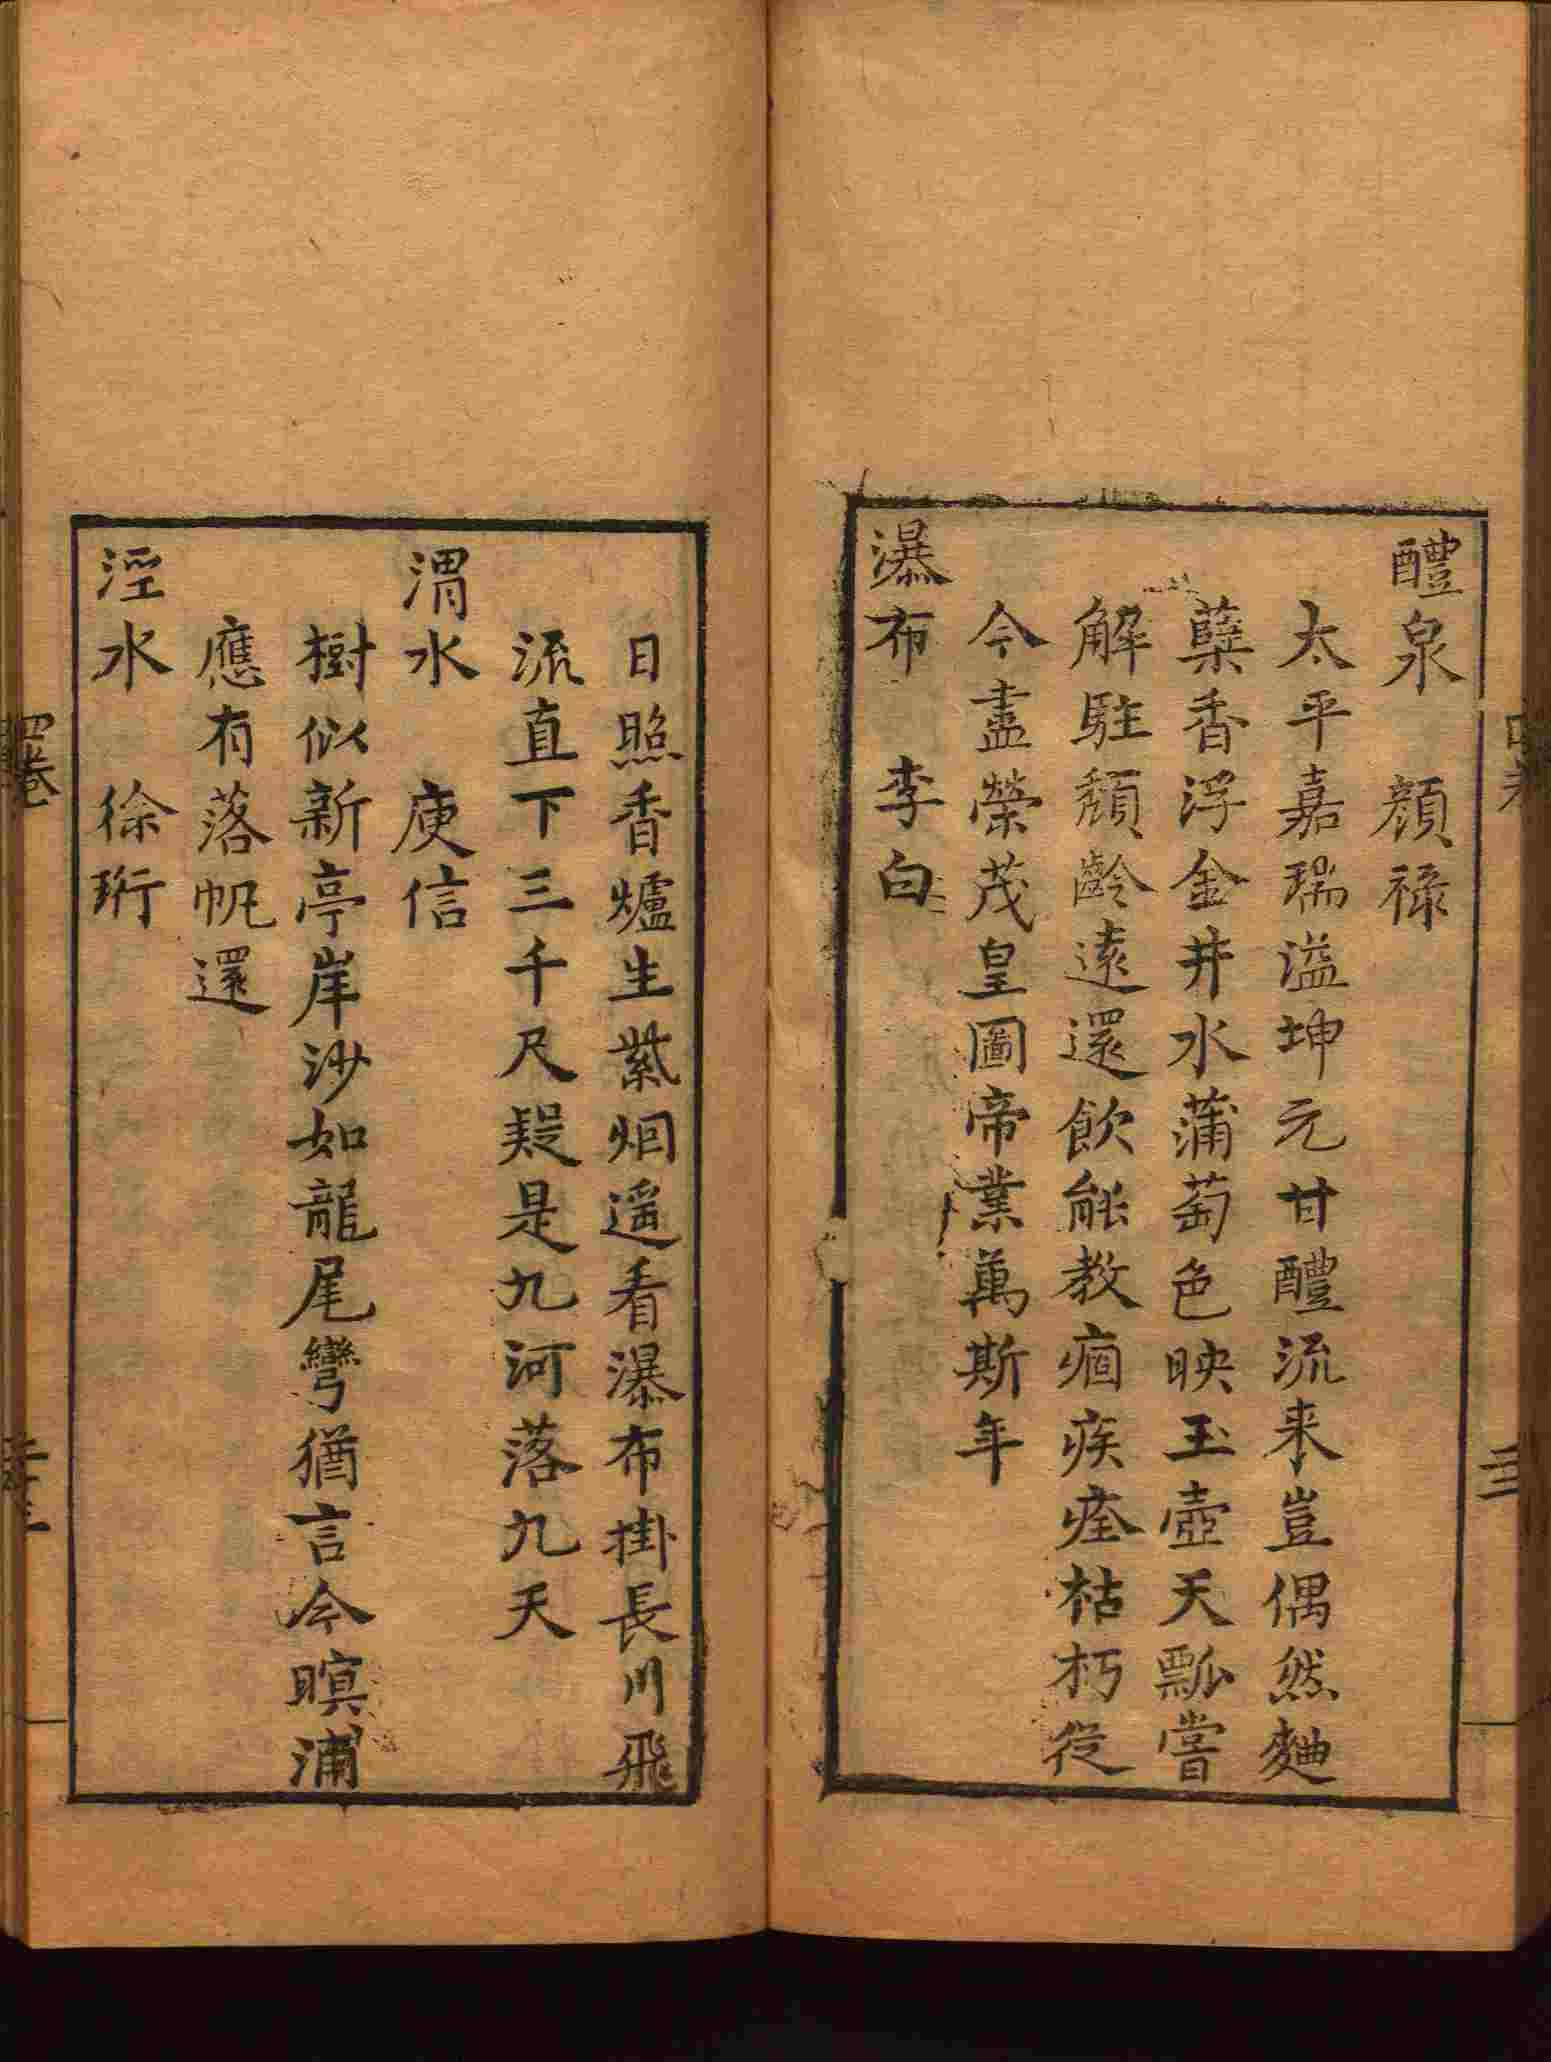 醴泉　顔祿
太平嘉瑞溢坤元甘醴流来豈偶然麯
蘖香浮金井水蒲萄色映玉壺天瓢嘗
解駐頽齡遠還飲能教痼疾痊枯朽從
今盡榮茂皇圖帝業萬斯年
瀑布　李白
日照香爐生紫烟遥看瀑布掛長川飛
流直下三千尺疑是九河落九天
渭水　庾信
樹似新亭岸沙如龍尾彎猶言今暝浦
應有落帆還
涇水　徐珩
四卷